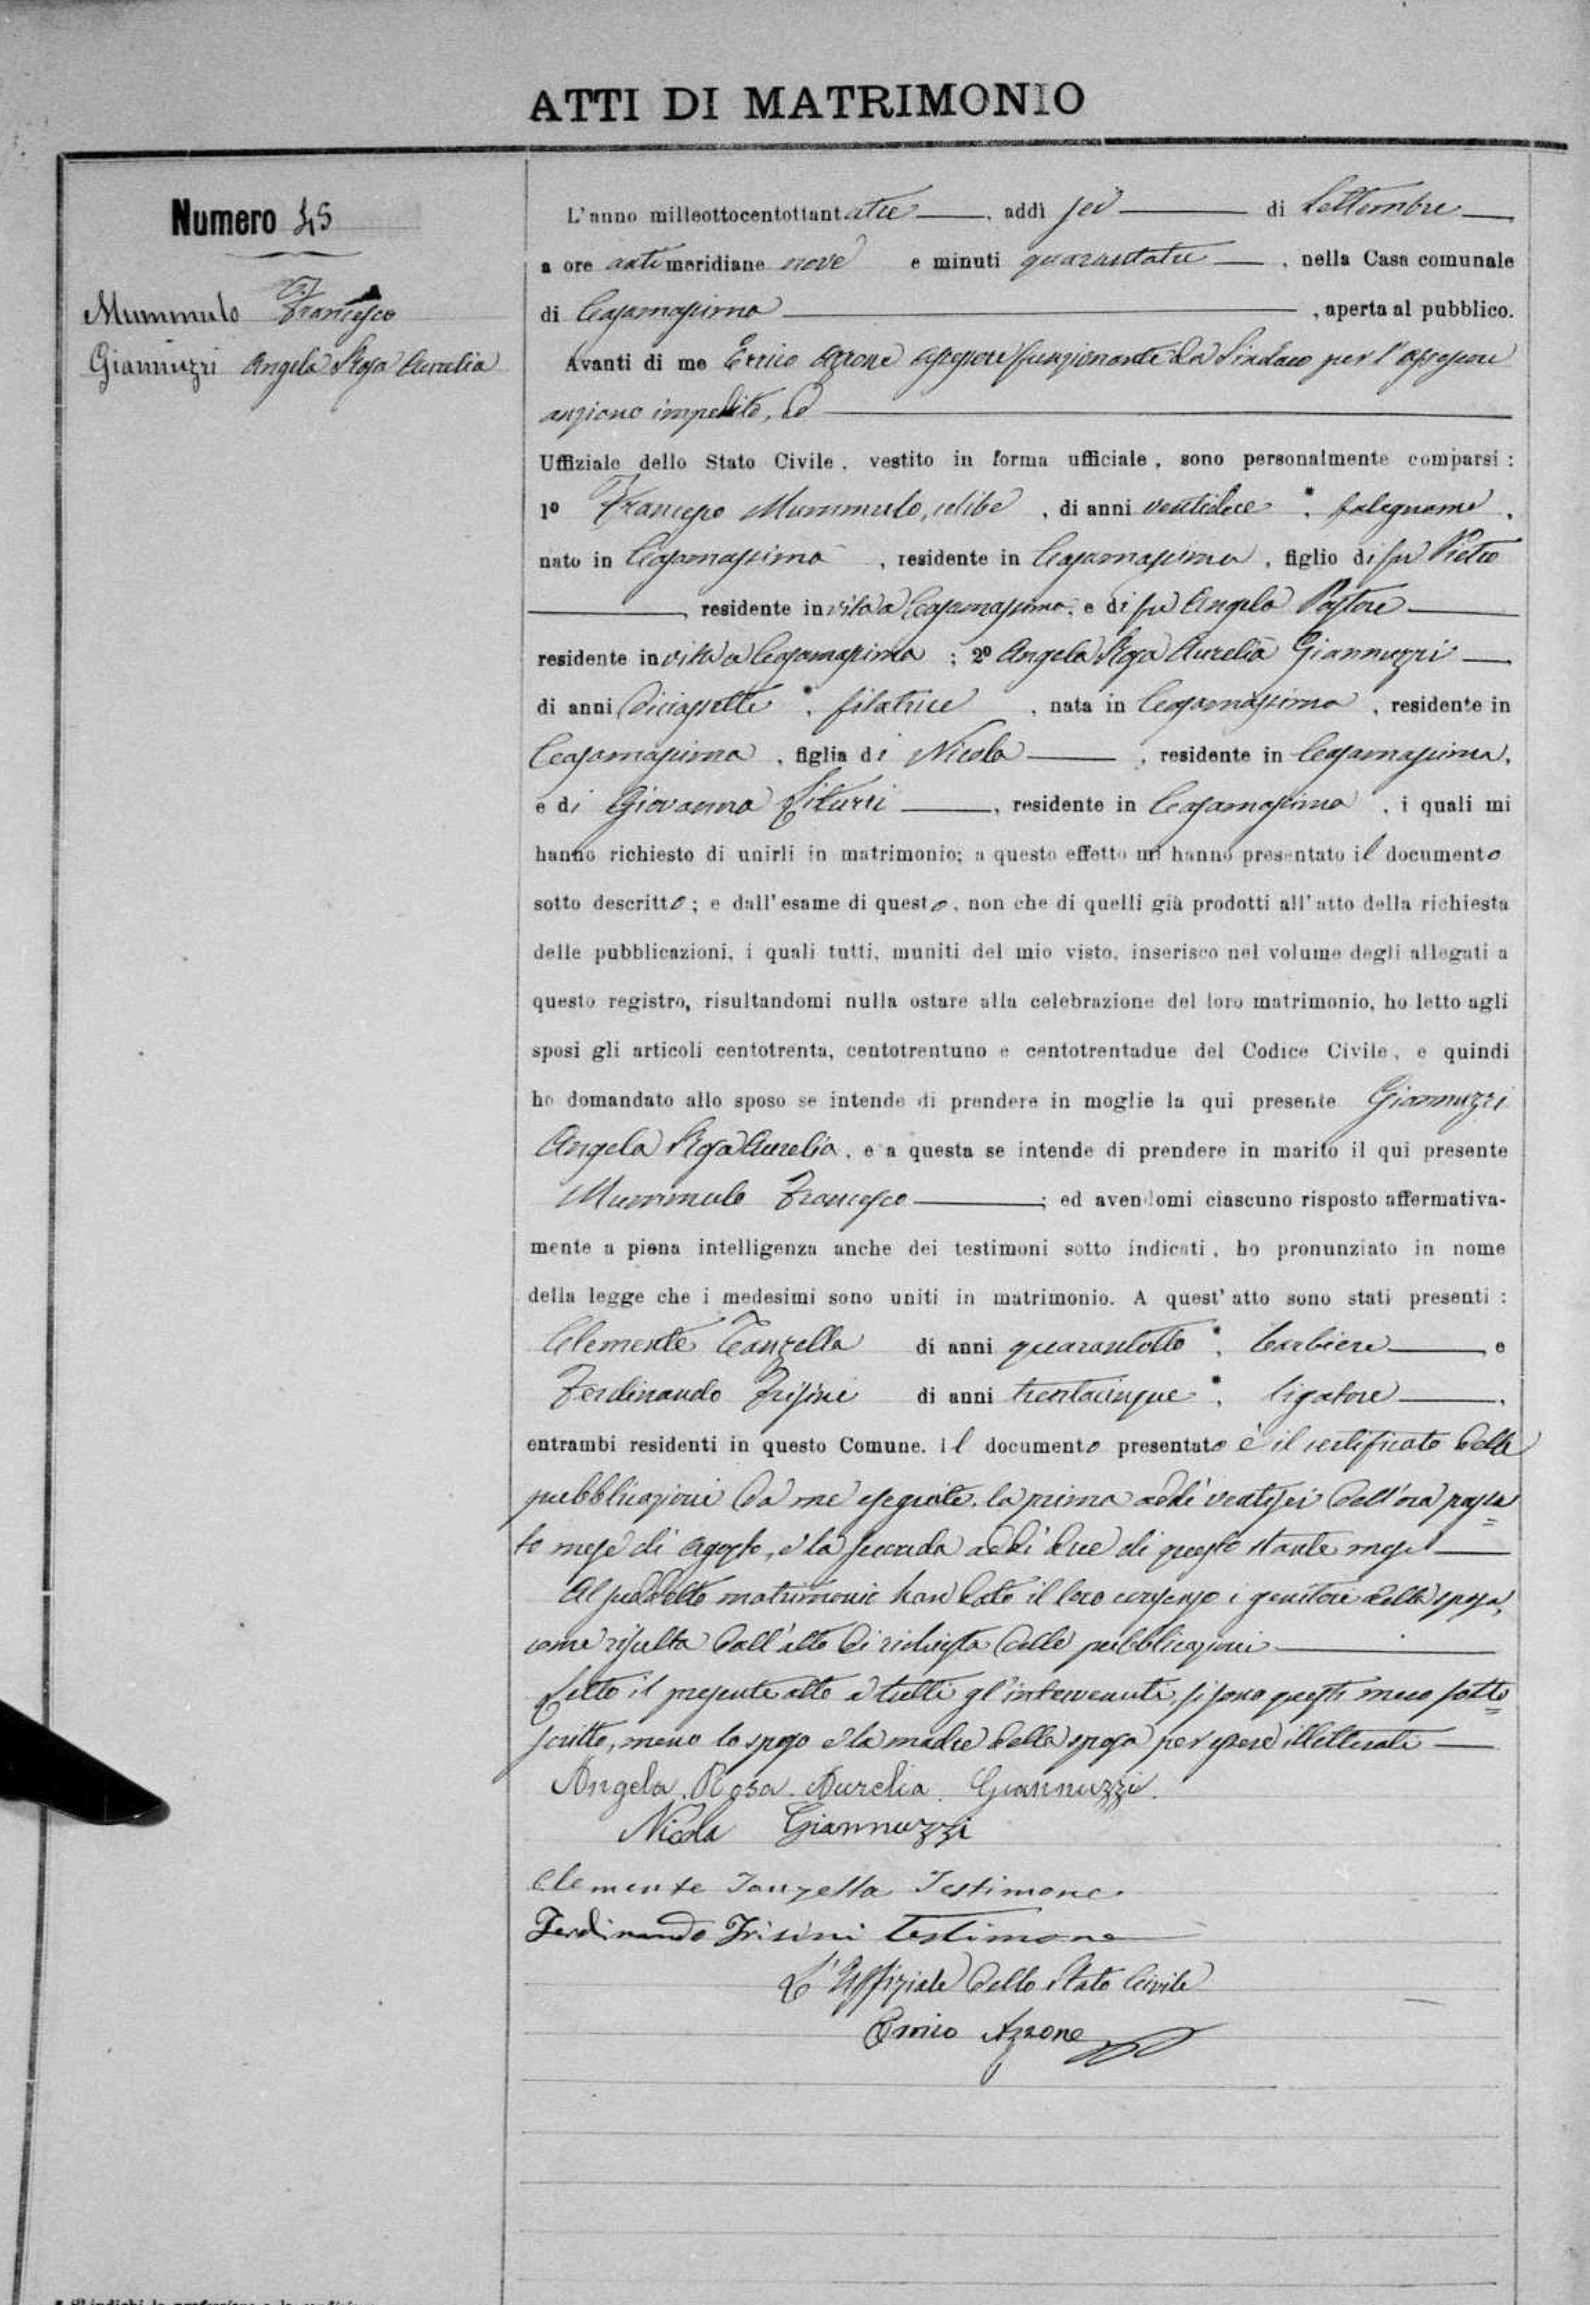 ATTI DI MATRIMONIO
Numero 45
Mummulo Francesco
Giannuzzi Angela Rosa Aurelia
L'anno milleottocentottantatre, addì sei di Settembre
a ore antimeridiane nove e minuti quarantatre, nella Casa comunale
di Casamassima, aperta al pubblico.
Avanti di me Errico Azzone assessore funzionante da Sindaco per l'assessore
anziano impedito, ed
Uffiziale dello Stato Civile, vestito in forma ufficiale, sono personalmente comparsi:
1º Francesco Mummulo, celibe, di anni ventidue *, falegname,
nato in Casamassima, residente in Casamassima, figlio di fu Pietro
, residente in vita a Casamassima, e di fu Angela Pastore
residente in vita a Casamassima; 2º Angela Rosa Aurelia Giannuzzi
di anni diciassette *, filatrice, nata in Casamassima, residente in
Casamassima, figlia di Nicola, residente in Casamassima,
e di Giovanna Fiturri, residente in Casamassima, i quali mi
hanno richiesto di unirli in matrimonio; a questo effetto mi hanno presentato il documento
sotto descritto; e dall'esame di questo, non che di quelli già prodotti all'atto della richiesta
delle pubblicazioni, i quali tutti, muniti del mio visto, inserisco nel volume degli allegati a
questo registro, risultandomi nulla ostare alla celebrazione del loro matrimonio, ho letto agli
sposi gli articoli centotrenta, centotrentuno e centotrentadue del Codice Civile, e quindi
ho domandato allo sposo se intende di prendere in moglie la qui presente Giannuzzi
Angela Rosa Aurelia, e a questa se intende di prendere in marito il qui presente
Mummulo Francesco; ed avendomi ciascuno risposto affermativa-
mente a piena intelligenza anche dei testimoni sotto indicati, ho pronunziato in nome
della legge che i medesimi sono uniti in matrimonio. A quest'atto sono stati presenti:
Clemente Tanzella di anni quarantotto *, barbiere, e
Ferdinando Frisini di anni trentacinque *, ligatore,
entrambi residenti in questo Comune. Il documento presentato è il certificato delle
pubblicazioni da me eseguite, la prima addì ventisei dell'ora passa=
to mese di Agosto, e la seconda addì due di questo stante mese
Al suddetto matrimonio han dato il loro consenso i genitori della sposa,
come risulta dall'atto di richiesta delle pubblicazioni
Letto il presente atto a tutti gl'intervenuti, si sono questi meco sotto=
scritto, meno lo sposo e la madre della sposa per essere illetterati
Angela Rosa Aurelia Giannuzzi.
Nicola Giannuzzi
Clemente Tanzella Testimone
Ferdinando Frisini testimone
L'Uffiziale dello Stato Civile
Errico Azzone